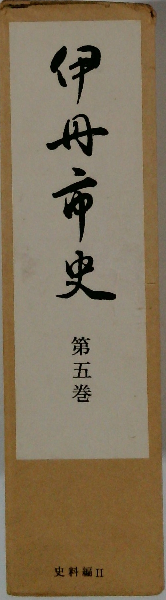 伊丹市史
第五巻
史料編II